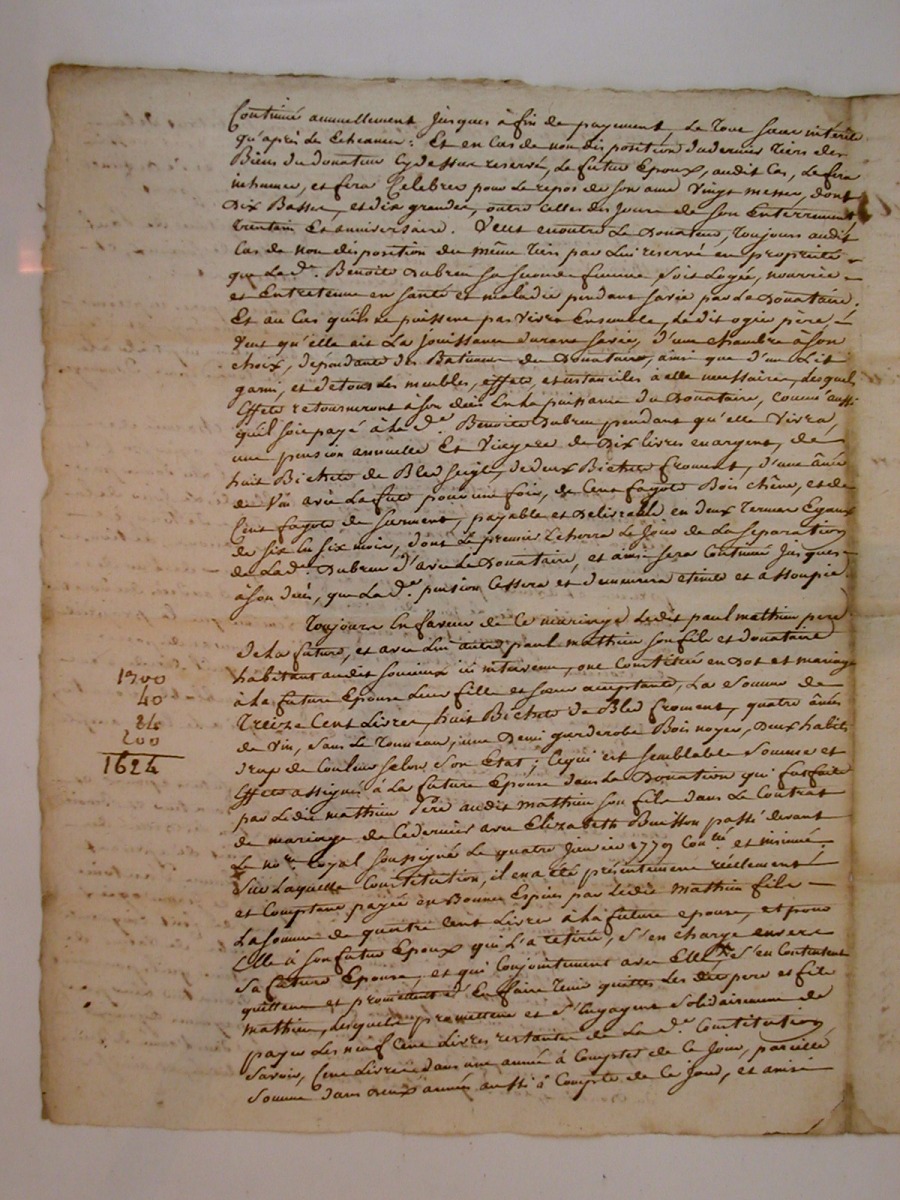 Continué annuellement jusques à fin de payement, Le tout sans intérêts
qu'après les Echeances : Et en Cas de non disposition du dernier tiers des
Biens du donateur Cy dessus reservés, Le futur Epoux, audit Cas, Le fera
inhumer, et fera Celebrer pour Le repos de son ame Vingt messes, dont
Dix Basses, et dix grandes, outre Celles des jours de son Enterrement
trentain Et anniversaire. Veut en outre Le Donateur, toujours audit
Cas de non disposition du même tiers par Lui reservé en propriété
que La de. Benoite Dubreu sa seconde femme soit Logée, nourrie
et Entretenue en santé et maladie pendant sa vie par Le Donataire.
Et au Cas qu'ils ne puissent pas Vivre Ensemble, Ledit ogier père
veut qu'elle ait La jouissance durant sa vie, d'une chambre à son
choix, dépendante des Batimens du Donataire, ainsi que d'un Lit
garni, et de tous Les meubles, effets, et ustanciles à elle necessaires, Lesquels
Effets retourneront à son décès En La puissance du Donataire, Comme aussi
qu'il soit payé à La de. Benoite Dubreu pendant qu'elle Vivra,
une pension annuelle Et Viagere de Dix livres en argent, de
huit Bichets de Bled seigle, de deux Bichets froment, d'une ânée
de Vin avec La fute pour une fois, de Cent fagots Bois chêne, et de
Cent fagots de sarment, payable et Delivrable en deux termes Egaux
de six En six mois, dont Le premier Echerra Le Jour de La separation
de La de. Dubreu d'avec Le Donataire, et ainsi sera Continué jusques
a son décès, que La de. pension Cessera et demeurera eteinte et assoupie.
Toujours En faveur de Ce mariage Ledit paul mathieu pere
de La future, et avec Lui autre paul mathieu son fils et donataire
habitant audit ici intervenu, ont Constitué en Dot et mariage
à La future Epouse Leur fille et sœur acceptante, La Somme de
Treize Cent Livres, huit Bichets de Bled froment, quatre ânées
de Vin, sans Le tonneau, une Demi garderobe Bois noyer, Deux habits
drap de Couleur selon son Etat ; Ce qui est semblable Somme et
Effets assignés à La future Epouse dans La Donation qui fut faite
par Ledit mathieu Père audit mathieu son fils dans Le Contrat
de mariage de Ce dernier avec Elizabeth Buisson passé devant
Le nore. royal soussigné Le quatre Janvier 1779 Conlé. et insinué.
Sur Laquelle Constitution, il en a été présentement réellement
et Comptant payée en Bonnes Espèces par Ledit Mathieu fils
La somme de quatre Cent Livres à La future epouse, et pour
Elle à son futur Epoux qui L'a retirée, S'en charge envers
Sa future Epouse, et qui Conjointement avec Elle S'en Contentent
quittent et promettent d'En faire tenir quittes Les dits pere et fils
mathieu, Lesquels promettent et s'Engagent Solidairement de
payer Les neuf Cent Livres restantes de La de. Constitution,
Savoir, Cent Livres dans une année à Compter de Ce jour, pareille
Somme dans deux années aussi à Compter de Ce Jour, et ainsi
1300
40
84
200
1624